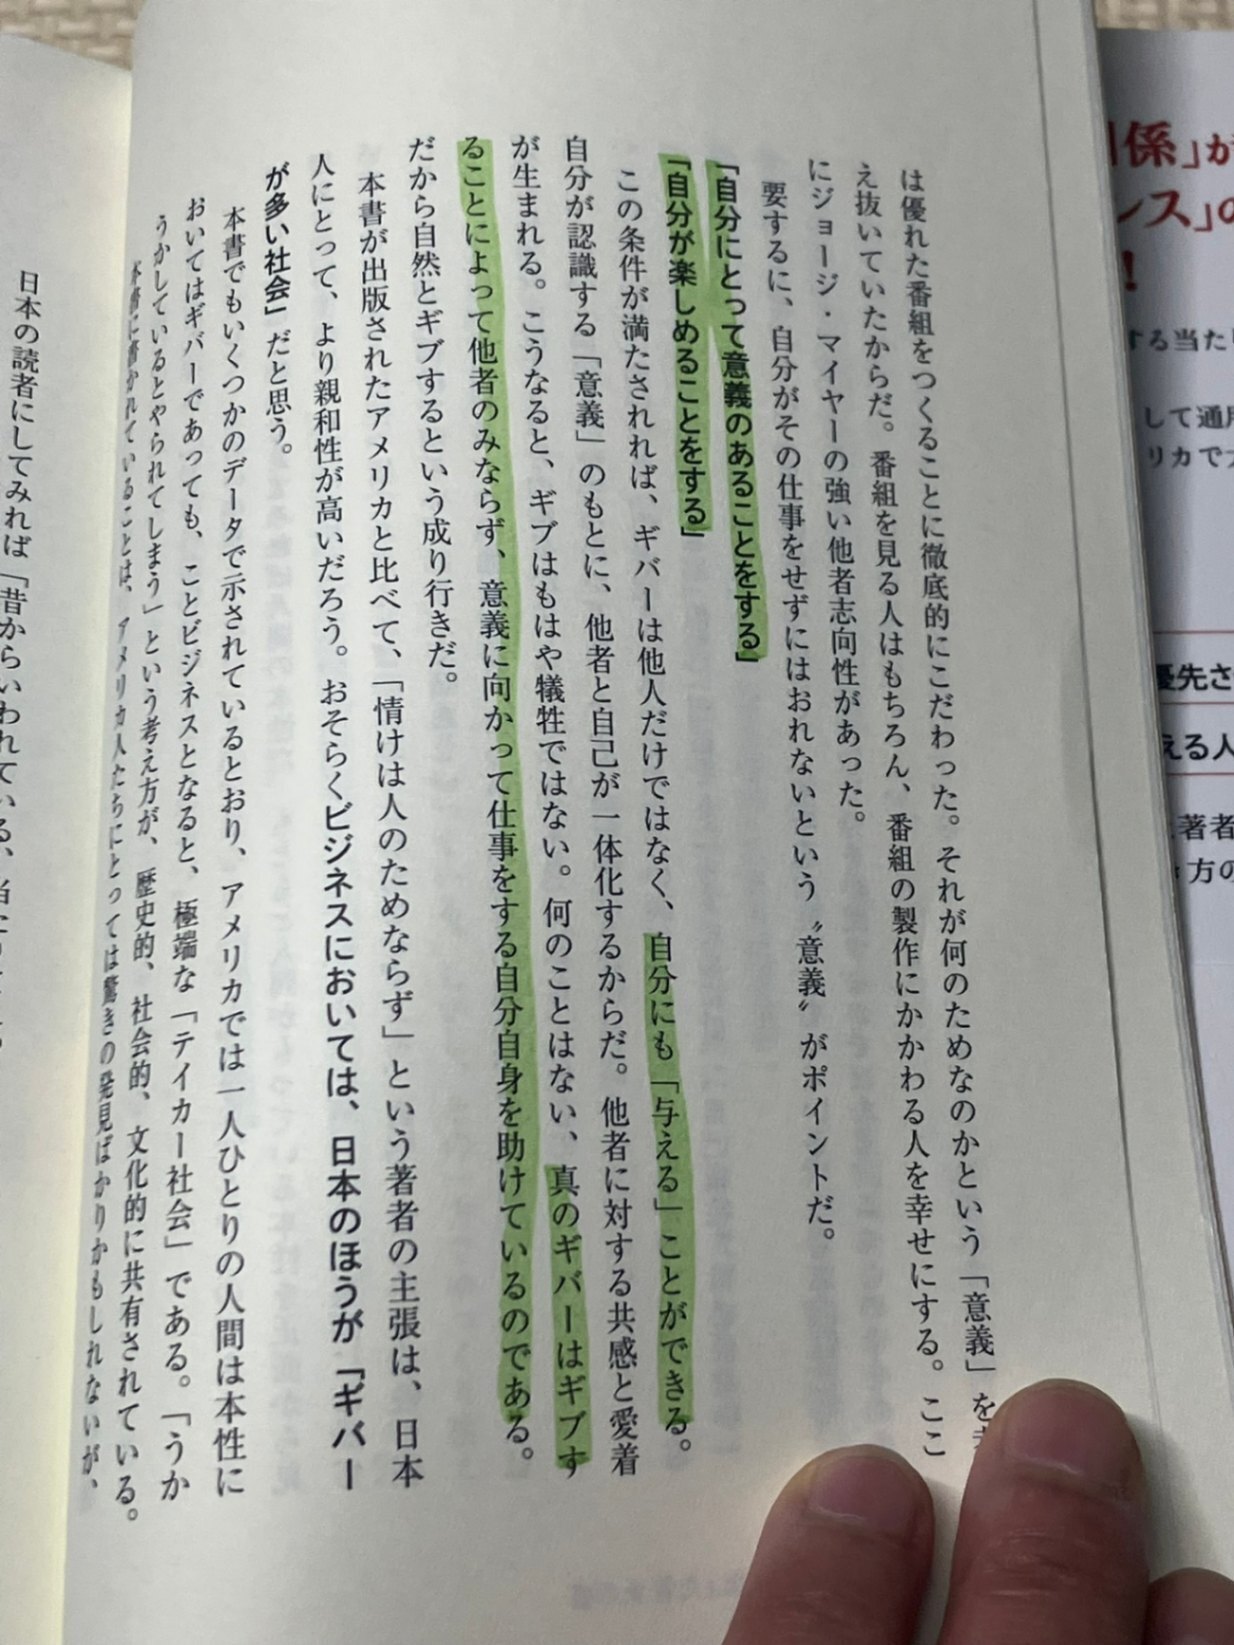 は優れた番組をつくることに徹底的にこだわった。それが何のためなのかという「意義」を考
え抜いていたからだ。番組を見る人はもちろん、番組の製作にかかわる人を幸せにする。ここ
にジョージ・マイヤーの強い他者志向性があった。
要するに、自分がその仕事をせずにはおれないという〝意義〟がポイントだ。
「自分にとって意義のあることをする」
「自分が楽しめることをする」
この条件が満たされれば、ギバーは他人だけではなく、自分にも「与える」ことができる。
自分が認識する「意義」のもとに、他者と自己が一体化するからだ。他者に対する共感と愛着
が生まれる。こうなると、ギブはもはや犠牲ではない。何のことはない、真のギバーはギブす
ることによって他者のみならず、意義に向かって仕事をする自分自身を助けているのである。
だから自然とギブするという成り行きだ。
本書が出版されたアメリカと比べて、「情けは人のためならず」という著者の主張は、日本
人にとって、より親和性が高いだろう。おそらくビジネスにおいては、日本のほうが「ギバー
が多い社会」だと思う。
本書でもいくつかのデータで示されているとおり、アメリカでは一人ひとりの人間は本性に
おいてはギバーであっても、ことビジネスとなると、極端な「テイカー社会」である。「うか
うかしているとやられてしまう」という考え方が、歴史的、社会的、文化的に共有されている。
本書に書かれていることは、アメリカ人たちにとっては驚きの発見ばかりかもしれないが、
日本の読者にしてみれば「昔からいわれている、
係」が
ンス」の
！
する当たり
して通用
リカで
優先さ
える人
著者
方の